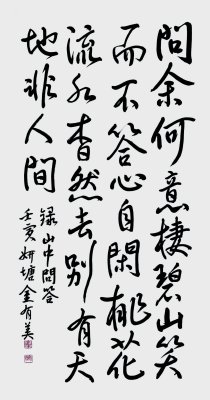 問余何意棲碧山笑
而不答心自閑桃花
流水杳然去別有天
地非人間
錄山中問答
壬寅 妍塘金有美